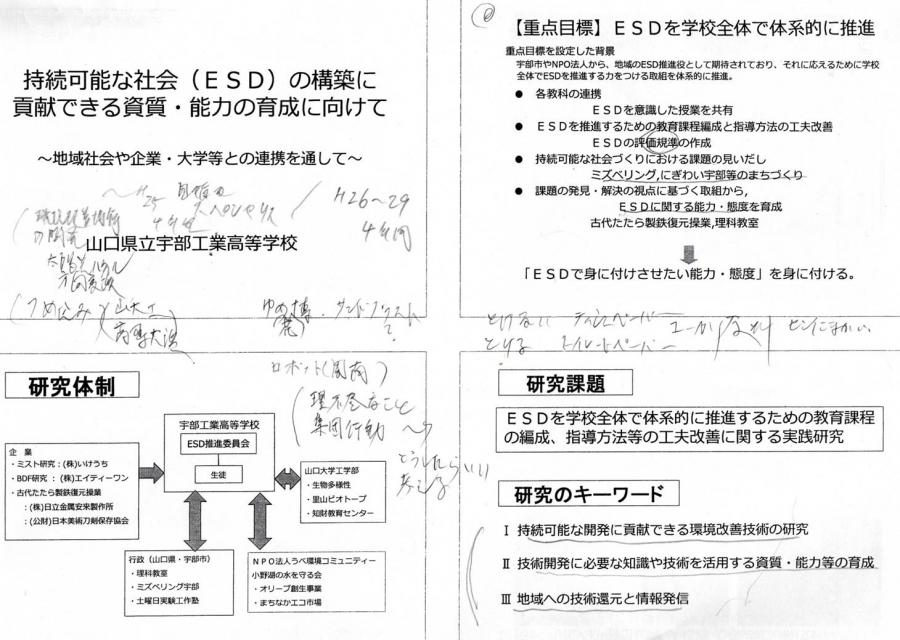 持続可能な社会（ＥＳＤ）の構築に
貢献できる資質・能力の育成に向けて
～地域社会や企業・大学等との連携を通して～
H26～29
4年間
山口県立宇部工業高等学校
(つめ込み)
【重点目標】ＥＳＤを学校全体で体系的に推進
重点目標を設定した背景
宇部市やNPO法人から、地域のESD推進役として期待されており、それに応えるために学校
全体でESDを推進する力をつける取組を体系的に推進。
● 各教科の連携
ＥＳＤを意識した授業を共有
● ＥＳＤを推進するための教育課程編成と指導方法の工夫改善
ESDの評価規準の作成
● 持続可能な社会づくりにおける課題の見いだし
ミズベリング,にぎわい宇部等のまちづくり
● 課題の発見・解決の視点に基づく取組から,
ESDに関する能力・態度を育成
古代たたら製鉄復元操業,理科教室
「ESDで身に付けさせたい能力・態度」を身に付ける。
とける ティシュペーパー
とける トイレットペーパー
研究体制
ロボット(
理不尽なこと
集団行動
宇部工業高等学校
ESD推進委員会
生徒
企 業
・ミスト研究：(株)いけうち
・BDF研究 ： (株)エイティーワン
・古代たたら製鉄復元操業
：(株)日立金属安来製作所
：(公財)日本美術刀剣保存協会
山口大学工学部
・生物多様性
・里山ビオトープ
・知財教育センター
行政（山口県・宇部市）
・理科教室
・ミズベリング宇部
・土曜日実験工作塾
ＮＰＯ法人うべ環境コミュニティー
小野湖の水を守る会
・オリーブ創生事業
・まちなかエコ市場
研究課題
ＥＳＤを学校全体で体系的に推進するための教育課程
の編成、指導方法等の工夫改善に関する実践研究
研究のキーワード
Ⅰ 持続可能な開発に貢献できる環境改善技術の研究
Ⅱ 技術開発に必要な知識や技術を活用する資質・能力等の育成
Ⅲ 地域への技術還元と情報発信